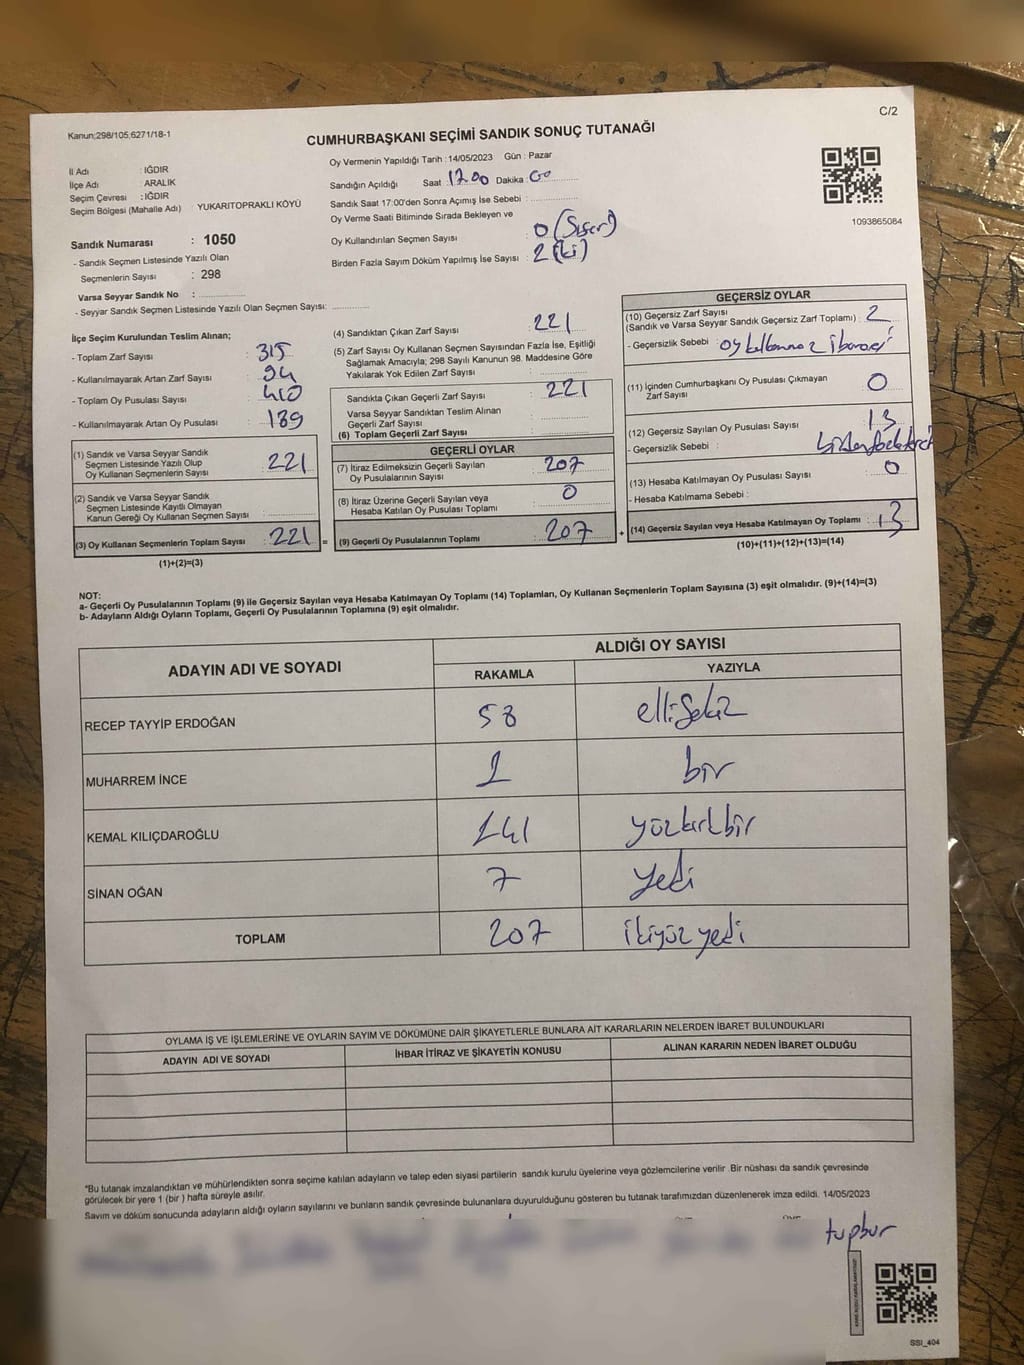 C/2
Kanun:298/105,6271/18-1
CUMHURBAŞKANI SEÇİMİ SANDIK SONUÇ TUTANAĞI
İl Adı : IĞDIR
İlçe Adı : ARALIK
Seçim Çevresi : IĞDIR
Seçim Bölgesi (Mahalle Adı) : YUKARITOPRAKLI KÖYÜ
Sandık Numarası : 1050
- Sandık Seçmen Listesinde Yazılı Olan
Seçmenlerin Sayısı : 298
Varsa Seyyar Sandık No :
- Seyyar Sandık Seçmen Listesinde Yazılı Olan Seçmen Sayısı:
Oy Vermenin Yapıldığı Tarih : 14/05/2023 Gün : Pazar
Sandığın Açıldığı Saat : 17.00 Dakika : 00
Sandık Saat 17:00'den Sonra Açımış İse Sebebi :
Oy Verme Saati Bitiminde Sırada Bekleyen ve
Oy Kullandırılan Seçmen Sayısı : 0 (Sıfır)
Birden Fazla Sayım Döküm Yapılmış İse Sayısı : 2 (iki)
1093865084
İlçe Seçim Kurulundan Teslim Alınan;
- Toplam Zarf Sayısı : 315
- Kullanılmayarak Artan Zarf Sayısı : 94
- Toplam Oy Pusulası Sayısı : 410
- Kullanılmayarak Artan Oy Pusulası : 189
(1) Sandık ve Varsa Seyyar Sandık
Seçmen Listesinde Yazılı Olup
Oy Kullanan Seçmenlerin Sayısı : 221
(2) Sandık ve Varsa Seyyar Sandık
Seçmen Listesinde Kayıtlı Olmayan
Kanun Gereği Oy Kullanan Seçmen Sayısı :
(3) Oy Kullanan Seçmenlerin Toplam Sayısı : 221 =
(1)+(2)=(3)
(4) Sandıktan Çıkan Zarf Sayısı : 221
(5) Zarf Sayısı Oy Kullanan Seçmen Sayısından Fazla İse, Eşitliği
Sağlamak Amacıyla; 298 Sayılı Kanunun 98. Maddesine Göre
Yakılarak Yok Edilen Zarf Sayısı :
Sandıkta Çıkan Geçerli Zarf Sayısı : 221
Varsa Seyyar Sandıktan Teslim Alınan
Geçerli Zarf Sayısı :
(6) Toplam Geçerli Zarf Sayısı :
GEÇERLİ OYLAR
(7) İtiraz Edilmeksizin Geçerli Sayılan
Oy Pusulalarının Sayısı : 207
(8) İtiraz Üzerine Geçerli Sayılan veya
Hesaba Katılan Oy Pusulası Toplamı : 0
(9) Geçerli Oy Pusulalarının Toplamı : 207 +
GEÇERSİZ OYLAR
(10) Geçersiz Zarf Sayısı
(Sandık ve Varsa Seyyar Sandık Geçersiz Zarf Toplamı) : 2
- Geçersizlik Sebebi : oy
(11) İçinden Cumhurbaşkanı Oy Pusulası Çıkmayan
Zarf Sayısı : 0
(12) Geçersiz Sayılan Oy Pusulası Sayısı : 13
- Geçersizlik Sebebi :
(13) Hesaba Katılmayan Oy Pusulası Sayısı : 0
- Hesaba Katılmama Sebebi :
(14) Geçersiz Sayılan veya Hesaba Katılmayan Oy Toplamı : 13
(10)+(11)+(12)+(13)=(14)
NOT:
a- Geçerli Oy Pusulalarının Toplamı (9) ile Geçersiz Sayılan veya Hesaba Katılmayan Oy Toplamı (14) Toplamları, Oy Kullanan Seçmenlerin Toplam Sayısına (3) eşit olmalıdır. (9)+(14)=(3)
b- Adayların Aldığı Oyların Toplamı, Geçerli Oy Pusulalarının Toplamına (9) eşit olmalıdır.
ADAYIN ADI VE SOYADI ALDIĞI OY SAYISI
RAKAMLA YAZIYLA
RECEP TAYYİP ERDOĞAN 58 ellisekiz
MUHARREM İNCE 1 bir
KEMAL KILIÇDAROĞLU 141 yüzkırkbir
SİNAN OĞAN 7 yedi
TOPLAM 207 ikiyüz yedi
OYLAMA İŞ VE İŞLEMLERİNE VE OYLARIN SAYIM VE DÖKÜMÜNE DAİR ŞİKAYETLERLE BUNLARA AİT KARARLARIN NELERDEN İBARET BULUNDUKLARI
ADAYIN ADI VE SOYADI İHBAR İTİRAZ VE ŞİKAYETİN KONUSU ALINAN KARARIN NEDEN İBARET OLDUĞU
"Bu tutanak imzalandıktan ve mühürlendikten sonra seçime katılan adayların ve talep eden siyasi partilerin sandık kurulu üyelerine veya gözlemcilerine verilir .Bir nüshası da sandık çevresinde
görülecek bir yere 1 (bir ) hafta süreyle asılır.
Sayım ve döküm sonucunda adayların aldığı oyların sayılarını ve bunların sandık çevresinde bulunanlara duyurulduğunu gösteren bu tutanak tarafımızdan düzenlenerek imza edildi. 14/05/2023
SSI_404